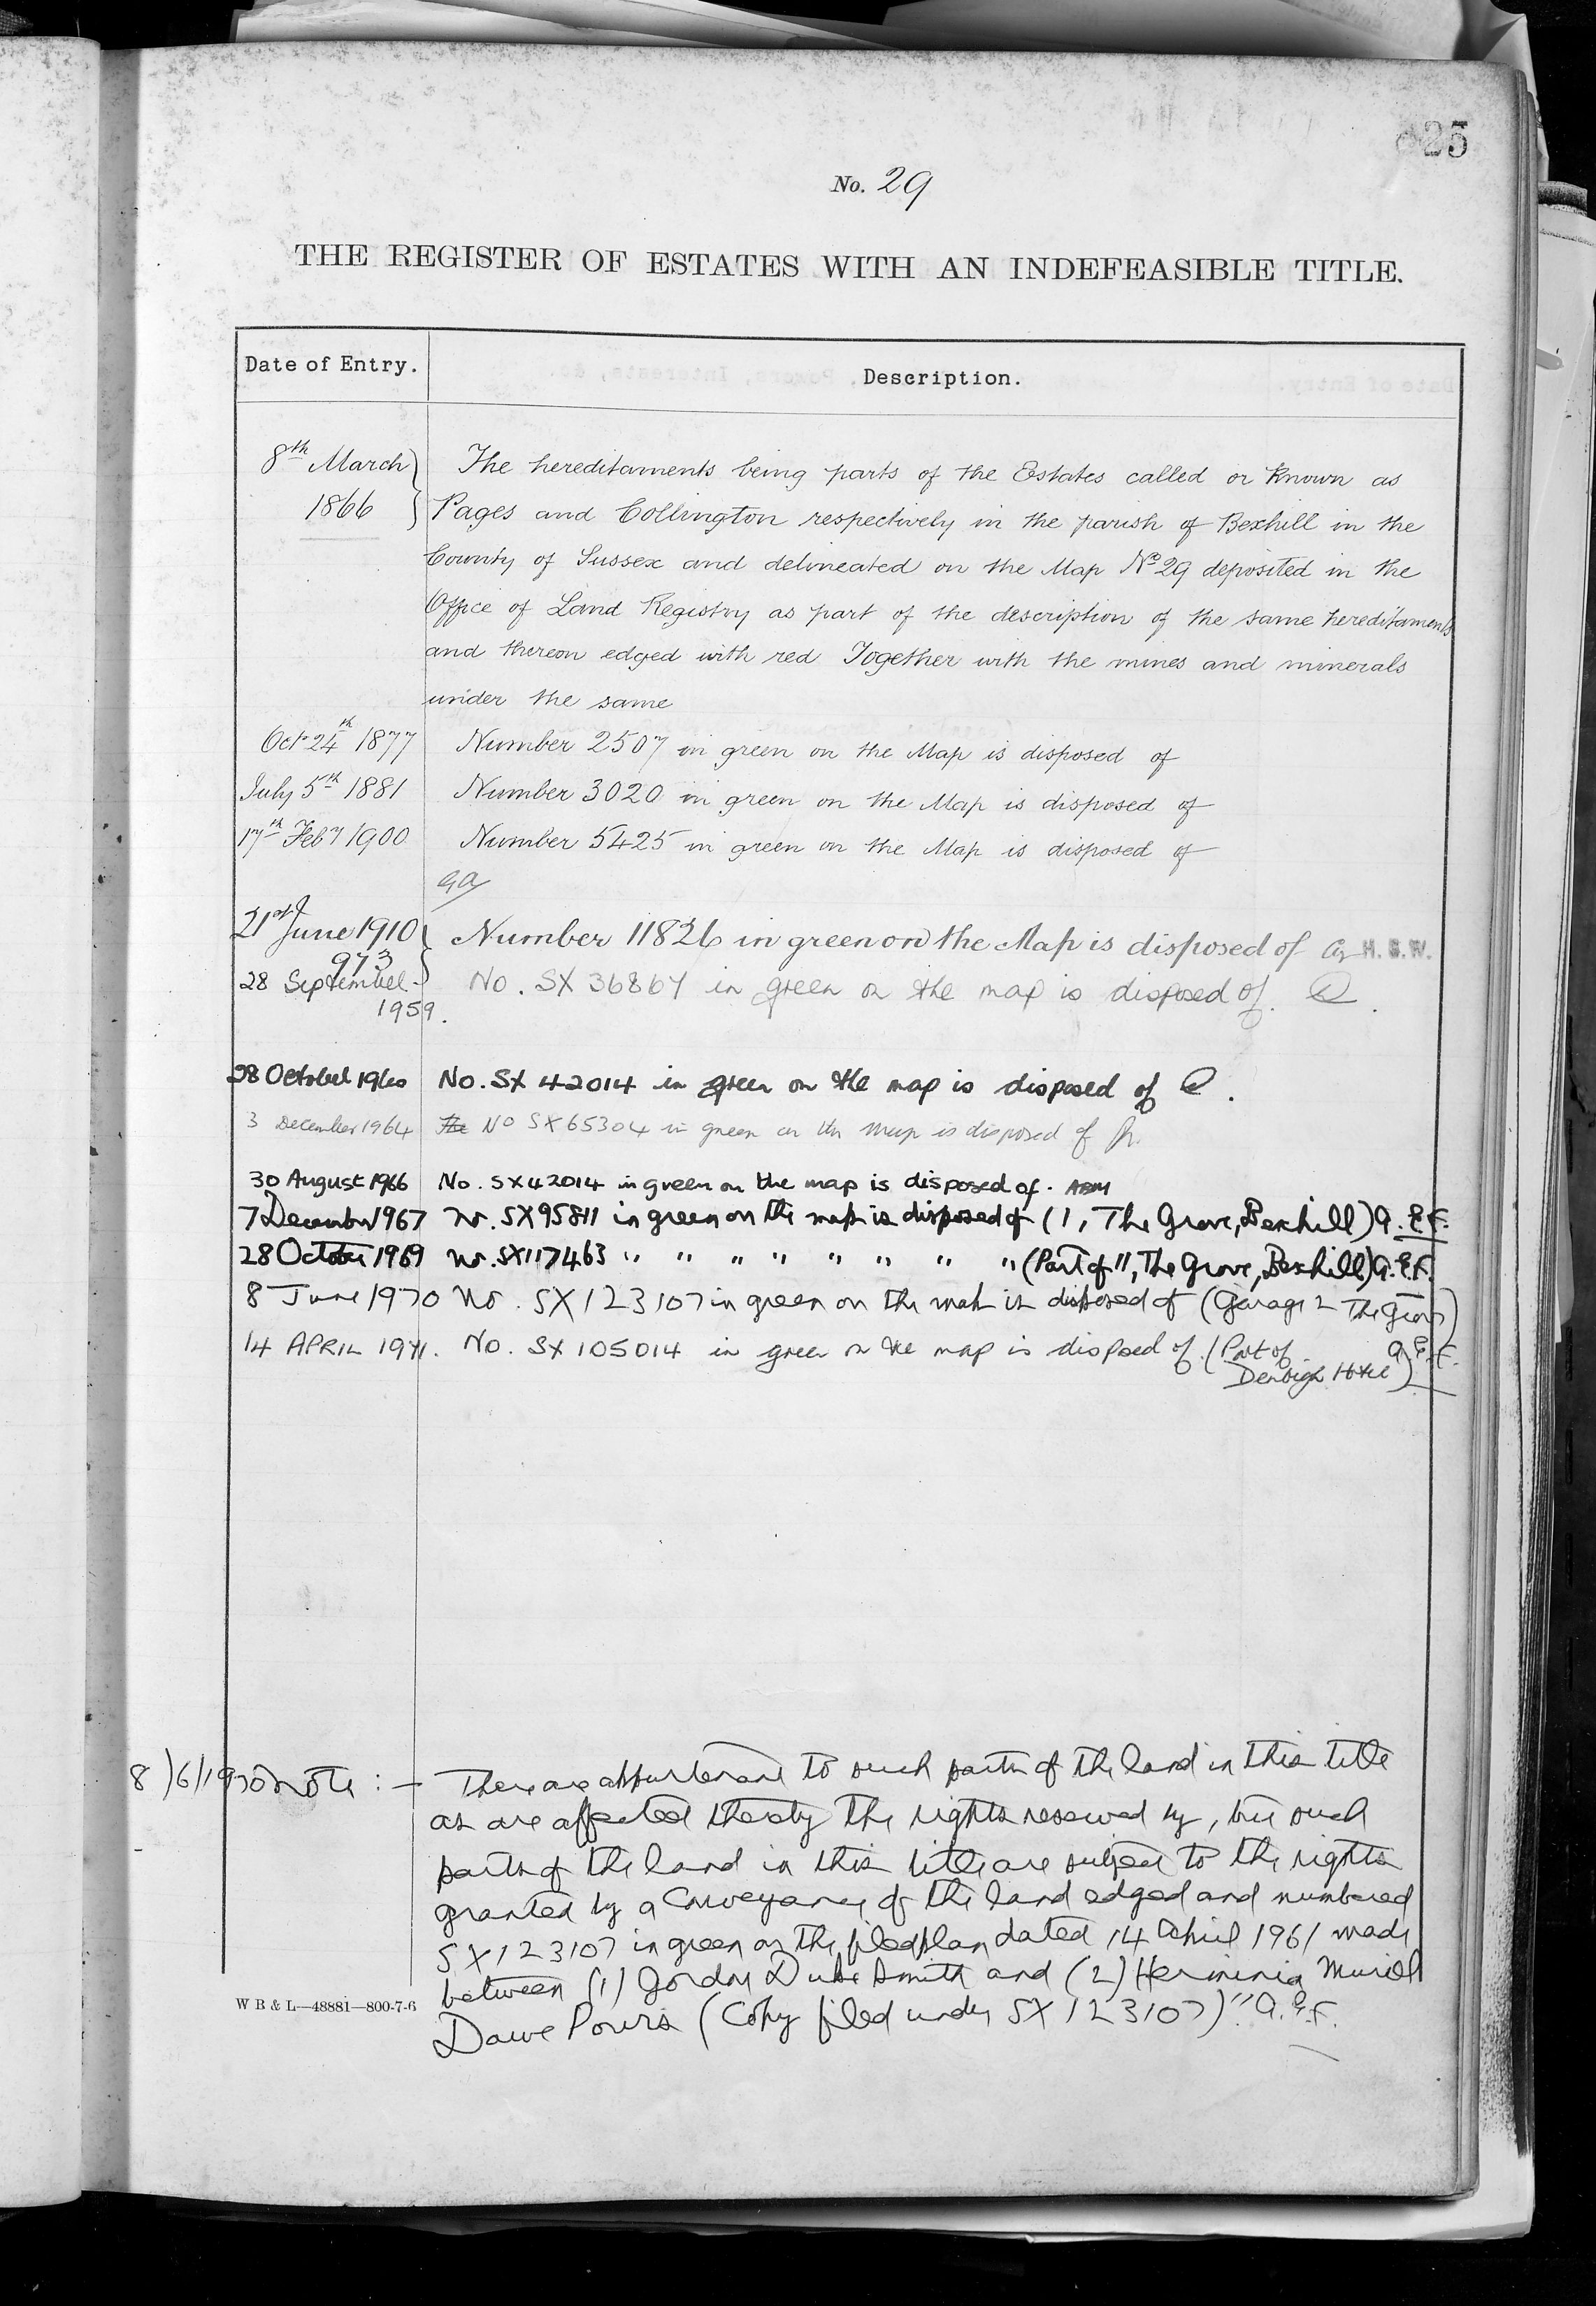 25
No. 29
THE REGISTER OF ESTATES WITH AN INDEFEASIBLE TITLE.
Date of Entry. Description.
8th March 1866 The hereditaments being parts of the Estates called or known as
Pages and Collington respectively in the parish of Bexhill in the
County of Sussex and delineated on the Map No 29 deposited in the
Office of Land Registry as part of the description of the same hereditaments
and thereon edged with red Together with the mines and minerals
under the same
Oct 24th 1877 Number 2507 in green on the Map is disposed of
July 5th 1881 Number 3020 in green on the Map is disposed of
17th Feby 1900 Number 5425 in green on the Map is disposed of
21st June 1910 Number 11826 in green on the Map is disposed of H.S.W.
973
28 September No. SX 36867 in green on the map is disposed of.
1959.
28 October 1960 No. SX 42014 in green on the map is disposed of
3 December 1964 The No SX65304 in green on the map is disposed of
30 August 1966 No. SX42014 in green on the map is disposed of. ABM
7 December 1967 No. SX95811 in green on the map is disposed of (1, The Grove, Bexhill) A.E.F.
28 October 1969 No. SX117463 " " " " " " " " (Part of 11, The Grove, Bexhill) A.E.F.
8 June 1970 No. SX123107 in green on the map is disposed of (Garage 2 The Grove)
A.E.F.
14 APRIL 1971. No. SX105014 in green on the map is disposed of. (Part of
Denbigh Hotel)
8/6/1970 Note :- There are appurtenant to such parts of the land in this title
as are affected thereby the rights reserved by, but such
parts of the land in this title are subject to the rights
granted by a Conveyance of the land edged and numbered
SX123107 in green on the filed plan dated 14 April 1961 made
between (1) Gordon Duke Smith and (2) Herminia Muriel
Dawe Powis (Copy filed under SX123107)." A.E.F.
W B & L—48881—800-7-6